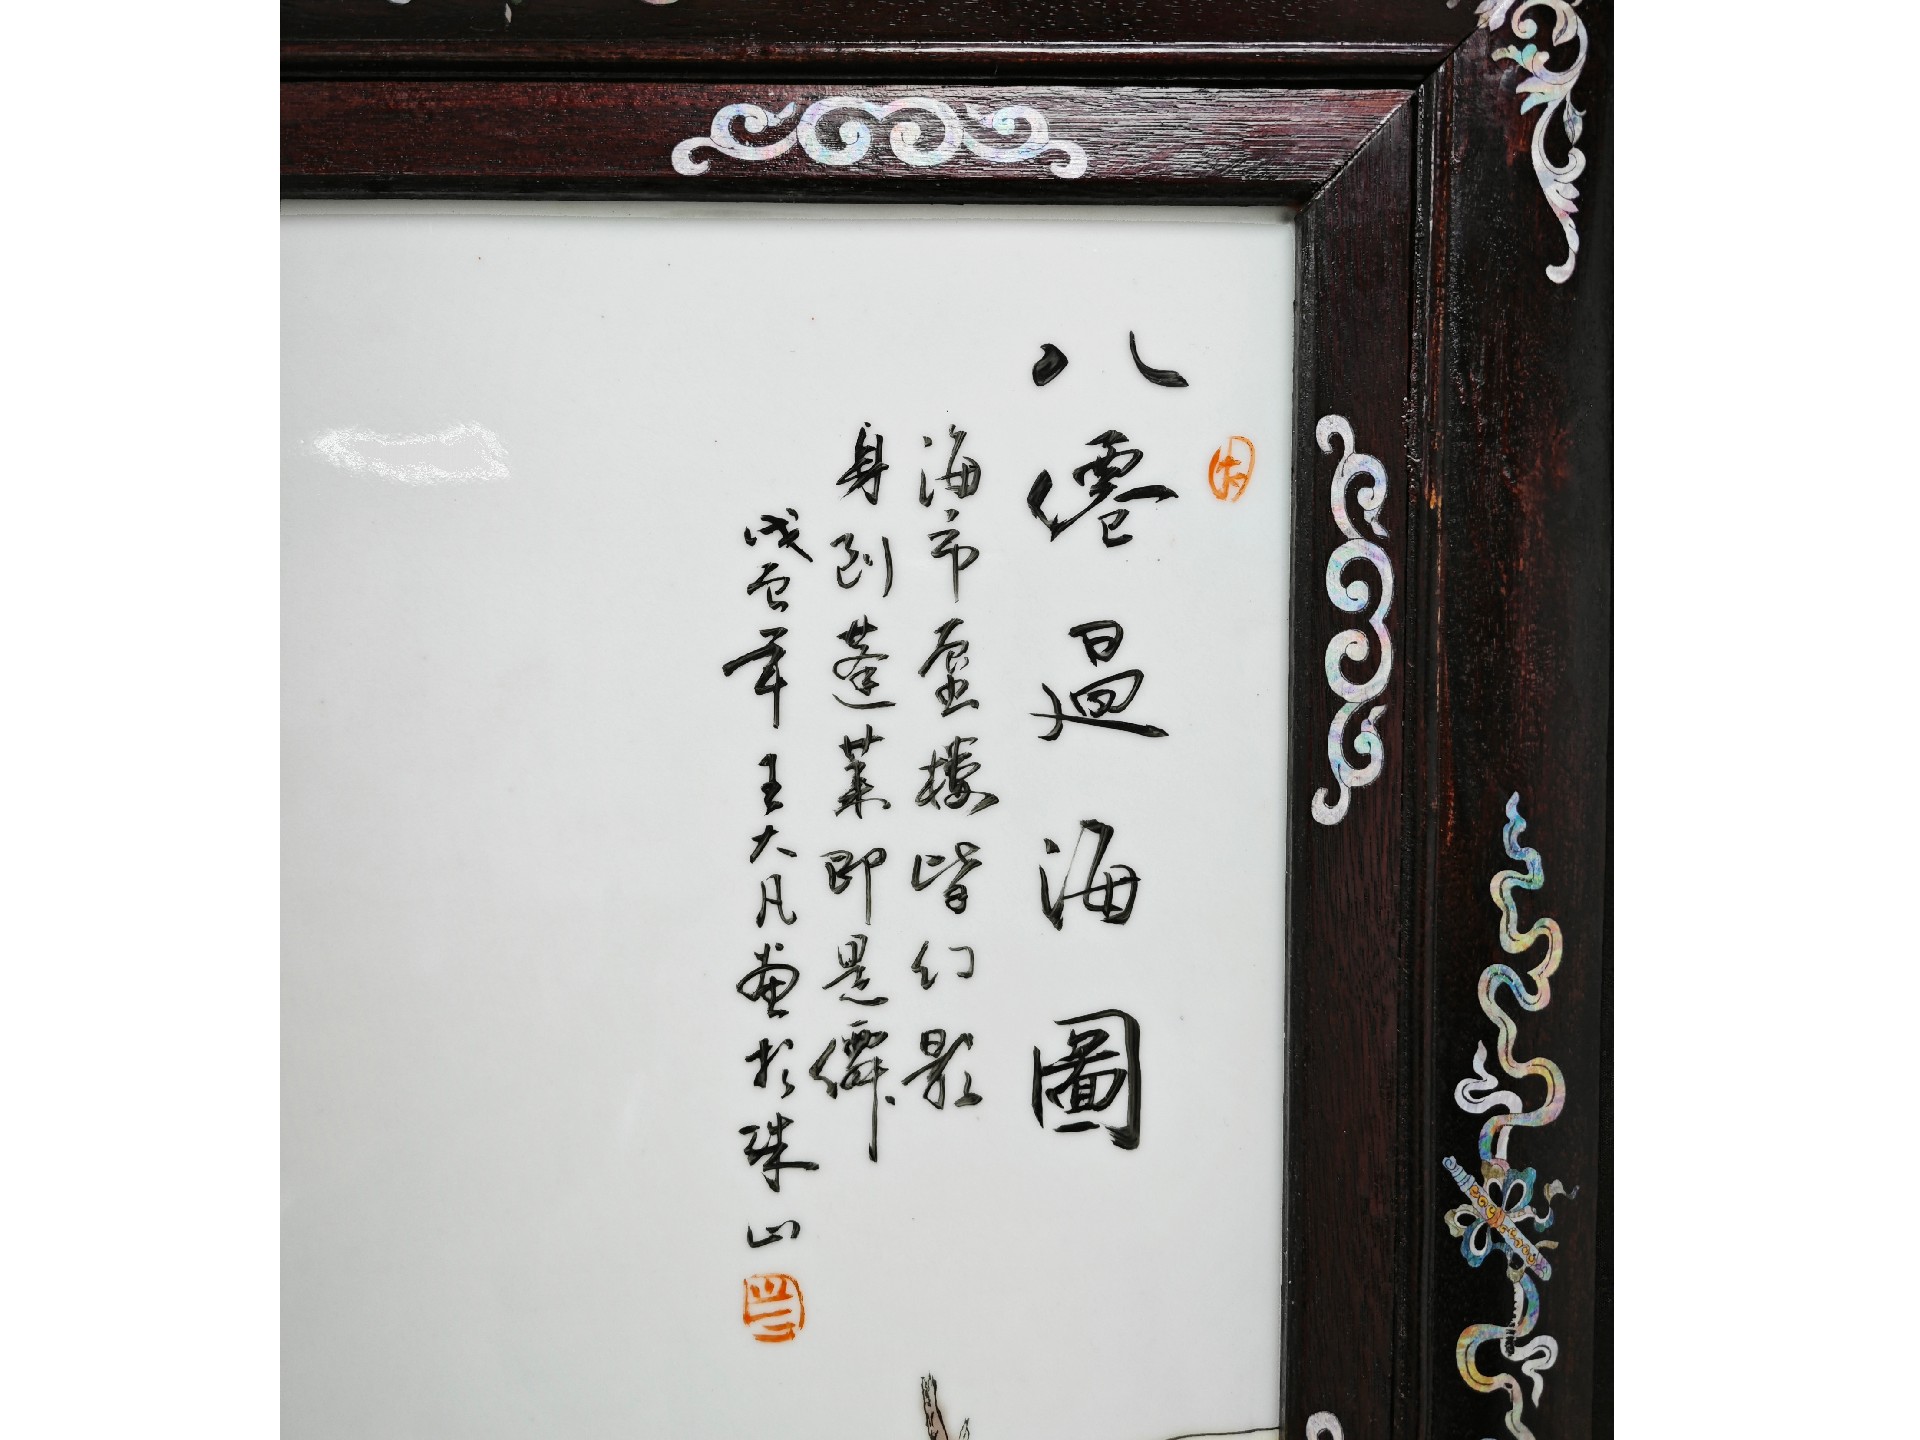 八僊過海圖
海市蜃楼皆幻影
身到蓬萊即是僊
年王大凡畫於珠山